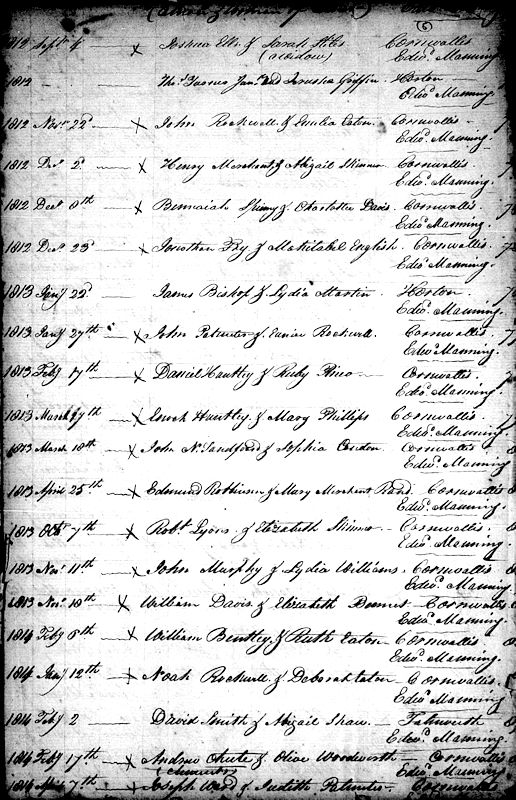 1812 Sept. 4 x Joshua Ells & Sarah Stiles Cornwallis
(Widow) Edwd. Manning
1812 Thos. Tupper Junr. and Griffin. Horton
Edwd. Manning.
1812 Novr. 22d x John Rockwell & Emilia Eaton. Cornwallis
Edwd. Manning.
1812 Decr. 2d. x Henry Merchent & Abigail Skinner Cornwallis
Edwd. Manning.
1812 Decr. 8th x Benaiah Spinny & Charlotte Davis. Cornwallis.
Edwd. Manning
1812 Decr. 23d x Jonathan Fry & English. Cornwallis.
Edwd. Manning.
1813 Jany 22d. James Bishop & Lydia Martin Horton
Edwd. Manning.
1813 Jany 27th x John & Eunice Rockwell. Cornwallis
Edwd. Manning.
1813 Feby 17th x Daniel Huntley & Ruby Cornwallis.
Edwd. Manning.
1813 March x Enoch Huntley & Mary Phillips Cornwallis.
Edwd. Manning.
1813 March 18th x John N. Sandford & Sophia Cornwallis
Edwd. Manning.
1813 April 25th x Edmund & Mary Merchent Rand. Cornwallis
Edwd. Manning.
1813 Octr 7th x Robt. Lyons & Elizabeth Skinner Cornwallis.
Edwd. Manning.
1813 Novr. 11th x John Murphy & Lydia Williams. Cornwallis
Edwd. Manning.
1813 Novr. 18th x William Davis & Elizabeth Cornwallis
Edwd. Manning.
1814 Feby 8th x William Bentley & Ruth Eaton Cornwallis
Edwd. Manning.
1814 Jany 12th x Noah Rockwell & Deborah Eaton Cornwallis
Edwd. Manning
1814 Feby 2 David Smith & Abigail Shaw. Falmouth
Edwd. Manning
1814 Feby 17th x Andrew Chute & Olive Woodworth Cornwallis
Edwd. Manning
1814 7th x Joseph & Judith Cornwallis